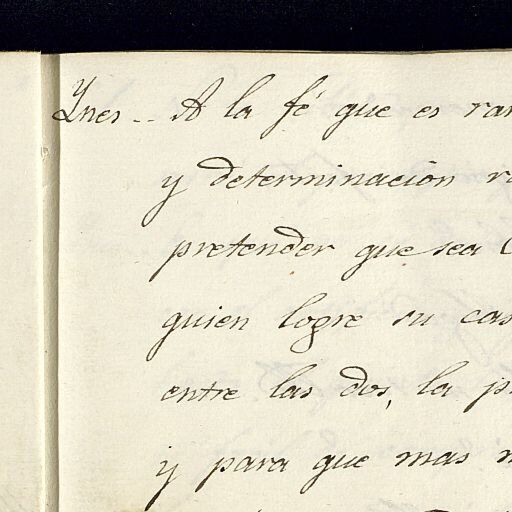 Ynes -- A la fé que es
y determinacion
pretender que sea
quien logre su
entre las dos, la
y para que mas